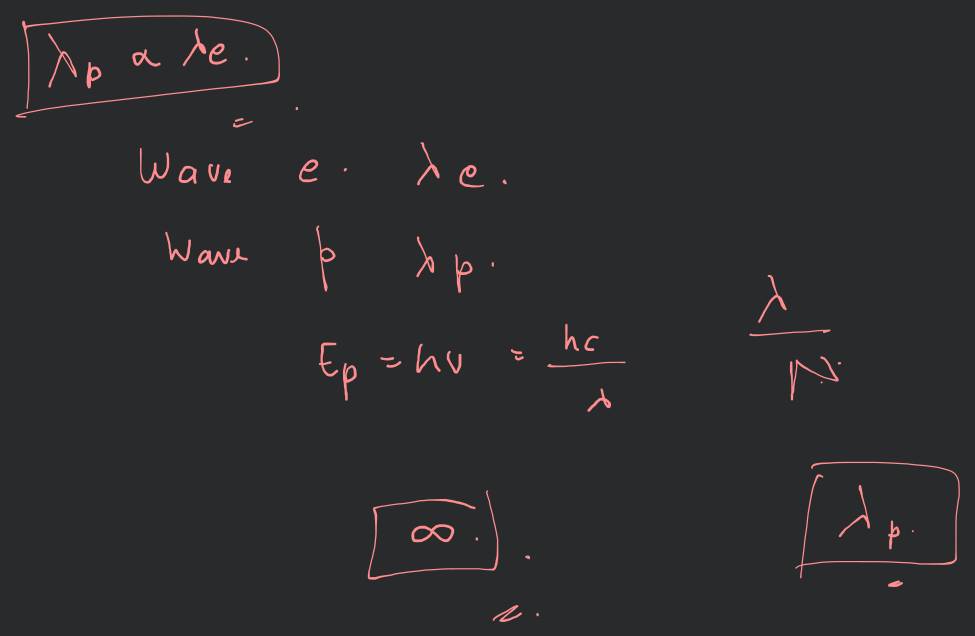 λp α λe.
Wave e. λe.
Wave p λp.
Ep = hν = hc/λ
λ
∞.
λp.